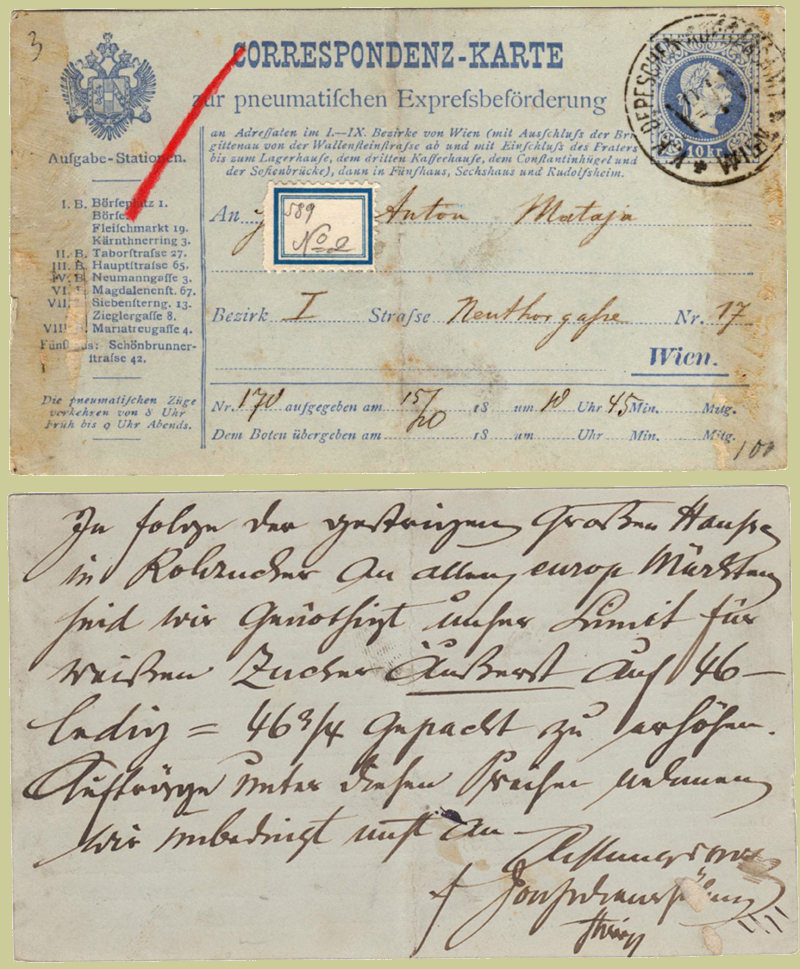 3
CORRESPONDENZ-KARTE
zur pneumatiſchen Expreſsbeförderung
an Adreſſaten im I.—IX. Bezirke von Wien (mit Ausſchluſs der Bri-
gittenau von der Wallenſteinſtraſse ab und mit Einſchluſs des Praters
bis zum Lagerhauſe, dem dritten Kaffeehauſe, dem Conſtantinhügel und
der Sofienbrücke), dann in Fünfhaus, Sechshaus und Rudolfsheim.
K.K. DEPESCHEN AUFGABE AMT
WIEN
10 kr.
Aufgabe-Stationen.
I. B. Börſeplatz 1.
Börſe
Fleiſchmarkt 19.
Kärnthnerring 3.
II. B. Taborſtraſse 27.
III. B. Hauptſtraſse 65.
IV. B. Neumanngaſſe 3.
VI. Magdalenenſt. 67.
VII. Siebenſterng. 13.
Zieglergaſſe 8.
VIII. Mariatreugaſſe 4.
Fünfhaus: Schönbrunner-
ſtraſse 42.
Die pneumatiſchen Züge
verkehren von 8 Uhr
Früh bis 9 Uhr Abends.
589
No 2
An Anton Mataja
Bezirk I Straſse Neuthorgaſse Nr. 17
Wien.
Nr. 170 aufgegeben am 15/10 18 um 10 Uhr 45 Min. Mttg.
Dem Boten übergeben am 18 um Uhr Min. Mttg.
100
In folge der gestrigen Großen Hausse
in Rohzucker an allen europ Märkten
sind wir Genöthigt unser Limit für
weißen Zucker Äußerst auf 46 –
ledig = 46 3/4 gepackt zu erhöhen.
Aufträge unter diesen Preisen nehmen
wir unbedingt nicht an –
Achtungsvoll